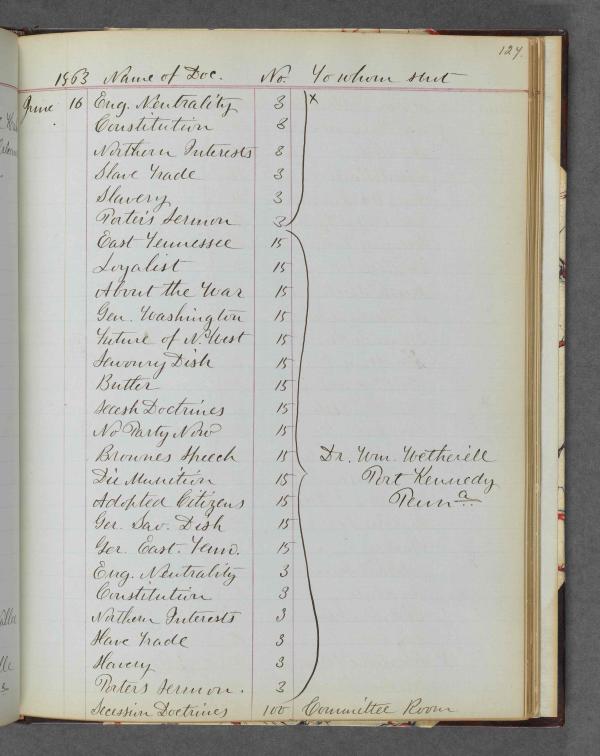 127.
1863 Name of Doc. No. To whom sent
June 16 Eng. Neutrality 3 x
Constitution 3
Northern Interests 3
Slave Trade 3
Slavery 3
Porter's Sermon 3
East Tennessee 15
Loyalist 15
About the War 15
Gen. Washington 15
Future of N. West 15
Savoury Dish 15
Butler 15
Secesh Doctrines 15
No Party Now 15
Brownes Speech 15 Dr. Wm. Wetherill
Die Munition 15 Port Kennedy
Adopted Citizens 15 Penna
Ger. Sav. Dish 15
Ger. East. Tenn. 15
Eng. Neutrality 3
Constitution 3
Northern Interests 3
Slave Trade 3
Slavery 3
Porters Sermon. 3
Secession Doctrines 100 Committee Room